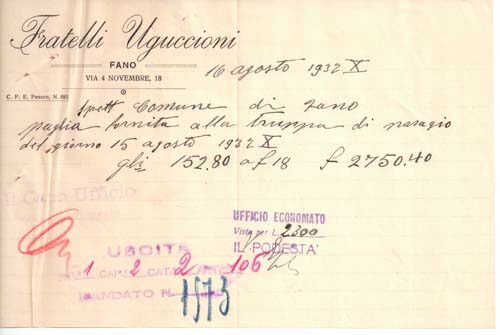 Fratelli Uguccioni
FANO
VIA 4 NOVEMBRE, 18
C. P. E. Pesaro, N. 683
16 agosto 1932 X
Spett Comune di Fano
paglia fornita alla truppa di passagio
del giorno 15 agosto 1932 X
gli 152.80 a £ 18 £ 2750.40
Il Capo Ufficio
UFFICIO ECONOMATO
Visto per L. 2300
IL PODESTA'
USCITA
1 CAP. 2 CAT. 2 ART. 106
MANDATO N.
1573